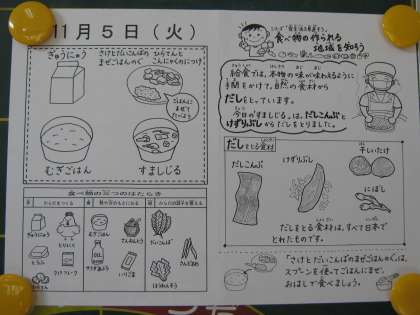 11月5日（火）
ぎゅうにゅう
さけとだいこんばの
まぜごはんのぐ
ひらてんと
こんにゃくのにつけ
ごはんに
まぜて
たべよう
むぎごはん
すましじる
食べ物の三つのはたらき
ぎゅうにゅう
とりにく
とうふ
むぎごはん
でんぷん
さとう
いりごま
だいこんば
ほうれんそう
食べ物の作られる
地域を知ろう
給食では、本物の味が味わえるように
手間をかけて、自然の食材から
だしをとっています。
今日の「すましじる」は、だしこんぶと
けずりぶしからだしをとりました。
だしをとる食材
だしこんぶ
けずりぶし
干しいたけ
にぼし
だしをとる食材は、すべて日本で
とれたものです。
「さけとだいこんばのまぜごはんのぐ」は、
スプーンを使ってごはんにまぜ、
おはしで食べましょう。